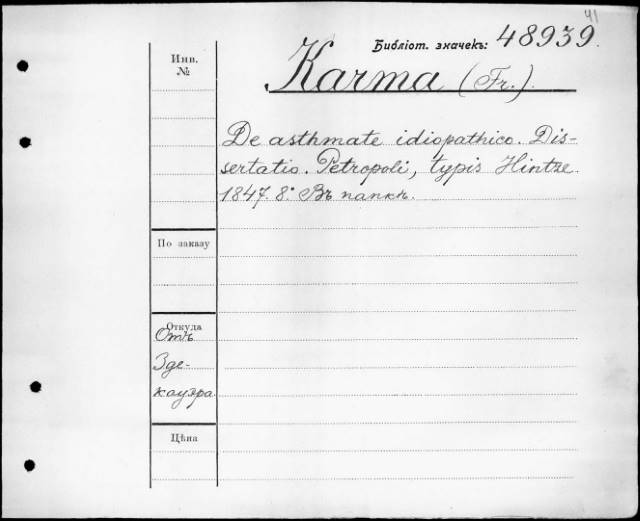 41
Библіот. значекъ: 48939.
Инв.
№
Karma (Fr.).
De asthmate idiopathico. Dis-
sertatio. Petropoli, typis Hintze.
1847. 8.° Въ папкѣ.
По заказу
Откуда
Отъ
Зде-
кауэра.
Цѣна